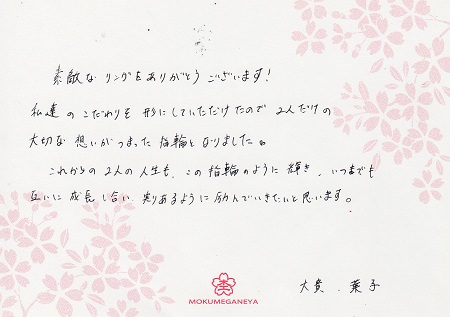 素敵なリングをありがとうございます!
私達のこだわりを形にしていただけたので2人だけの
大切な想いがつまった指輪となりました。
これからの2人の人生も、この指輪のように輝き、いつまでも
互いに成長し合い、実りあるように励んでいきたいと思います。
大貴、葉子
MOKUMEGANEYA